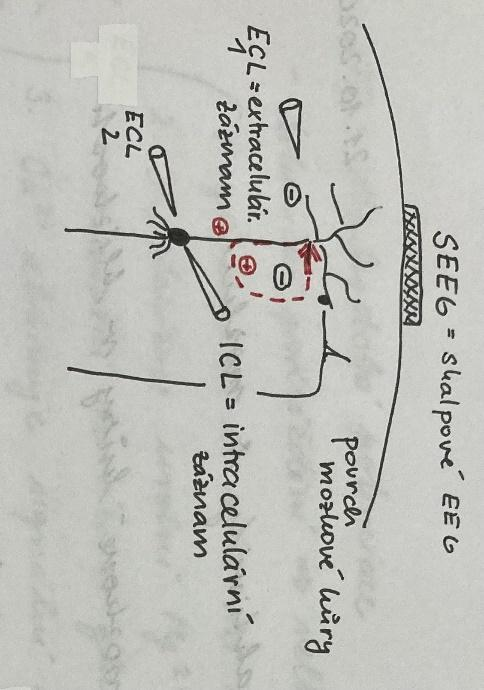 SEEG = skalpové EEG
povrch
mozkové kůry
ECL = extracelulár.
1
záznam
ECL
2
ICL = intracelulární
záznam